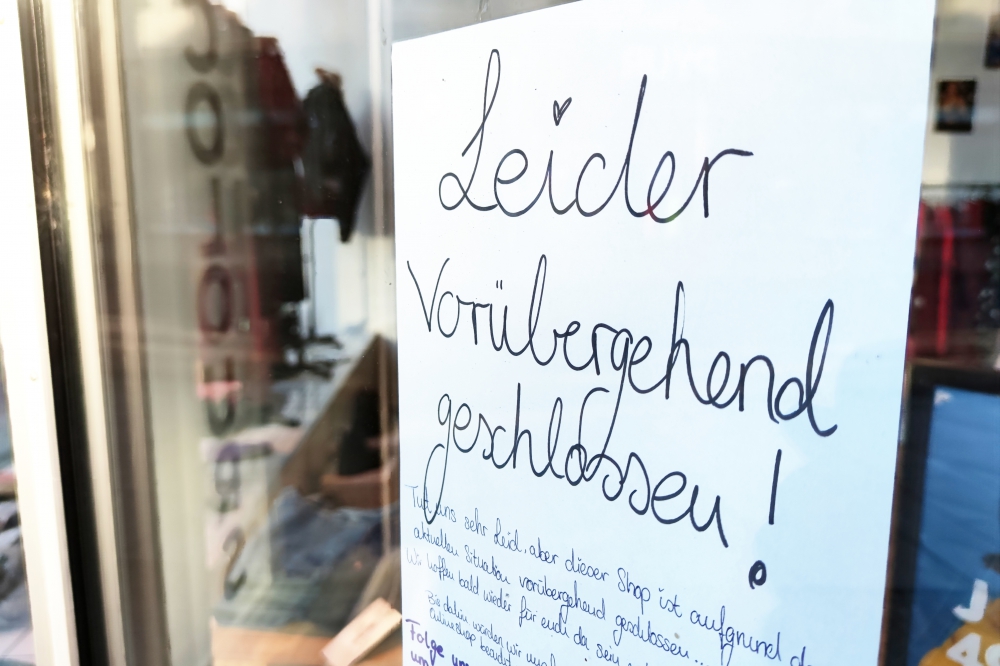 Leider
Vorübergehend
geschlossen!
Tut uns sehr Leid, aber dieser Shop ist aufgrund
aktuellen Situation vorübergehend geschlossen..
Wir hoffen bald wieder für euch da sein
Bis dahin würden wir uns
Onlineshop besucht
Folge un